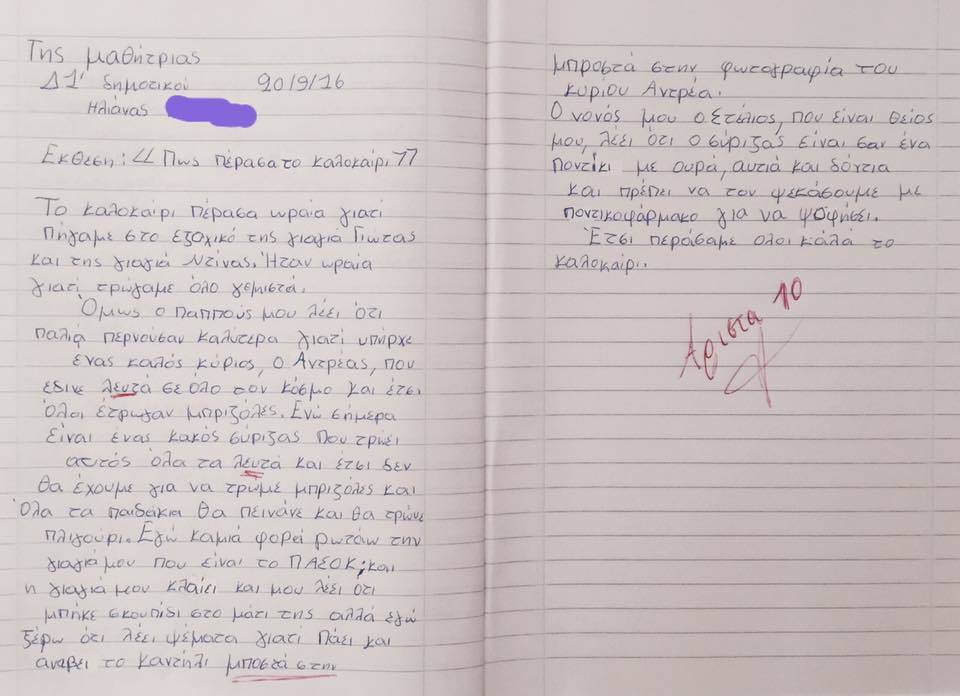 Της μαθήτριας
Δ1' δημοτικού 20/9/16
Ηλιάνας
Έκθεση: "Πως πέρασα το καλοκαίρι"
Το καλοκαίρι πέρασα ωραία γιατί
πήγαμε στο εξοχικό της γιαγιά Γιωτας
και της γιαγιά Ντίνας. Ήταν ωραία
γιατί τρώγαμε όλο γεμιστά.
Όμως ο παππούς μου λέει ότι
παλιά περνούσαν καλύτερα γιατί υπήρχε
ένας καλός κύριος, ο Αντρέας, που
έδινε λευτά σε όλο τον κόσμο και έτσι
όλοι έτρωγαν μπριζόλες. Ενώ σήμερα
είναι ένας κακός σύριζας που τρώει
αυτός όλα τα λευτά και έτσι δεν
θα έχουμε για να τρώμε μπριζόλες και
όλα τα παιδάκια θα πεινάνε και θα τρώνε
πλιγούρι. Εγώ καμιά φορεί ρωτάω την
γιαγιά μου που είναι το ΠΑΣΟΚ; και
η γιαγιά μου κλαίει και μου λέει ότι
μπήκε σκουπίδι στο μάτι της αλλά εγώ
ξέρω ότι λέει ψέματα γιατί πάει και
ανάβει το καντήλι μποστά στην
μπροστά στην φωτογραφία του
κυρίου Αντρέα.
Ο νονός μου ο Στέλιος, που είναι θείος
μου, λέει ότι ο σύριζας είναι σαν ένα
ποντίκι με ουρά, αυτιά και δόντια
και πρέπει να τον ψεκάσουμε με
ποντικοφάρμακο για να ψοφήσει.
Έτσι περάσαμε όλοι καλά το
καλοκαίρι.
Άριστα 10